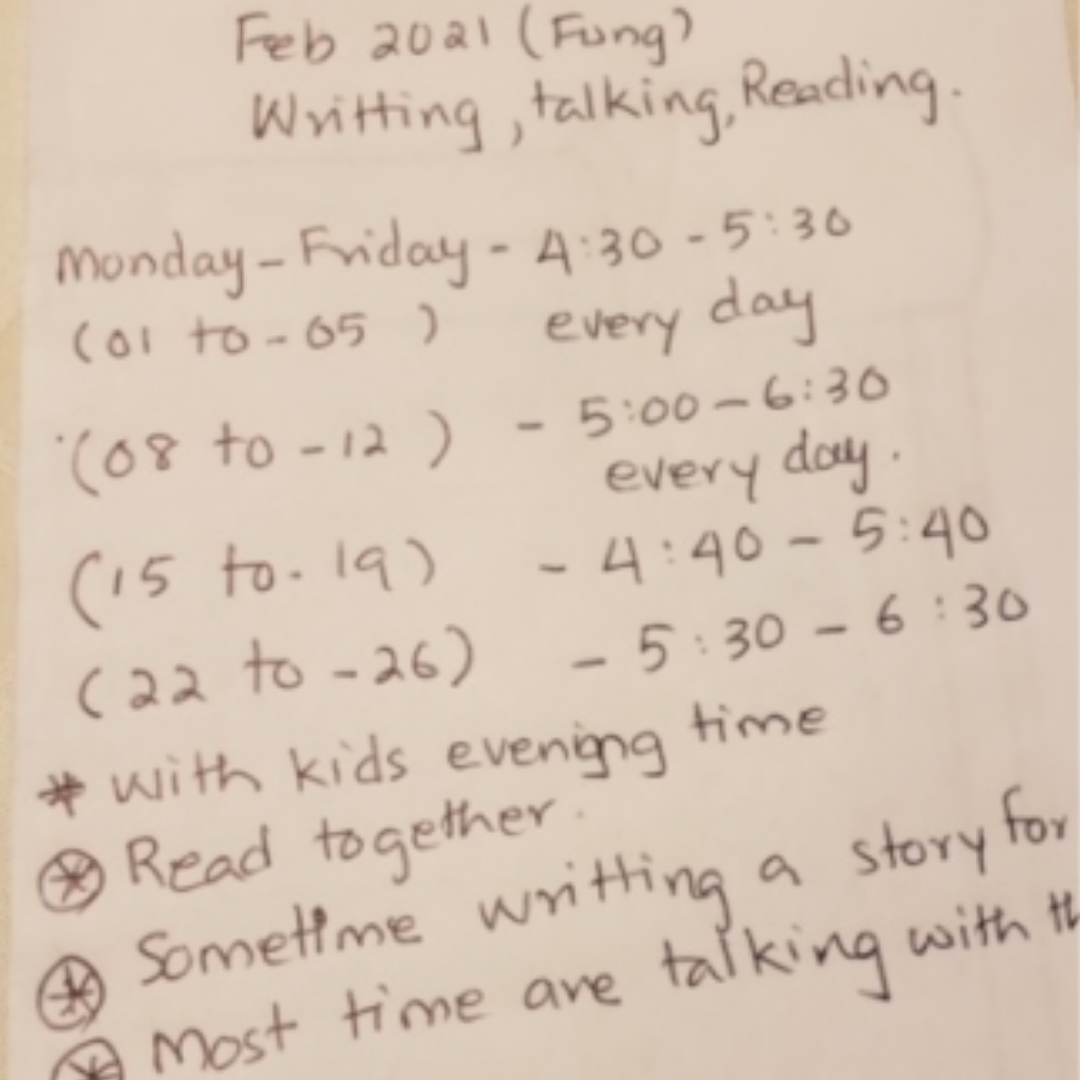 Feb 2021 (Fung)
Writting, talking, Reading.
Monday - Friday - 4:30 - 5:30
(01 to - 05 ) every day
(08 to - 12 ) - 5:00 - 6:30
every day.
(15 to - 19) - 4:40 - 5:40
(22 to - 26) - 5:30 - 6:30
* with kids evenigng time
* Read together.
* Sometime writting a story for
* Most time are talking with